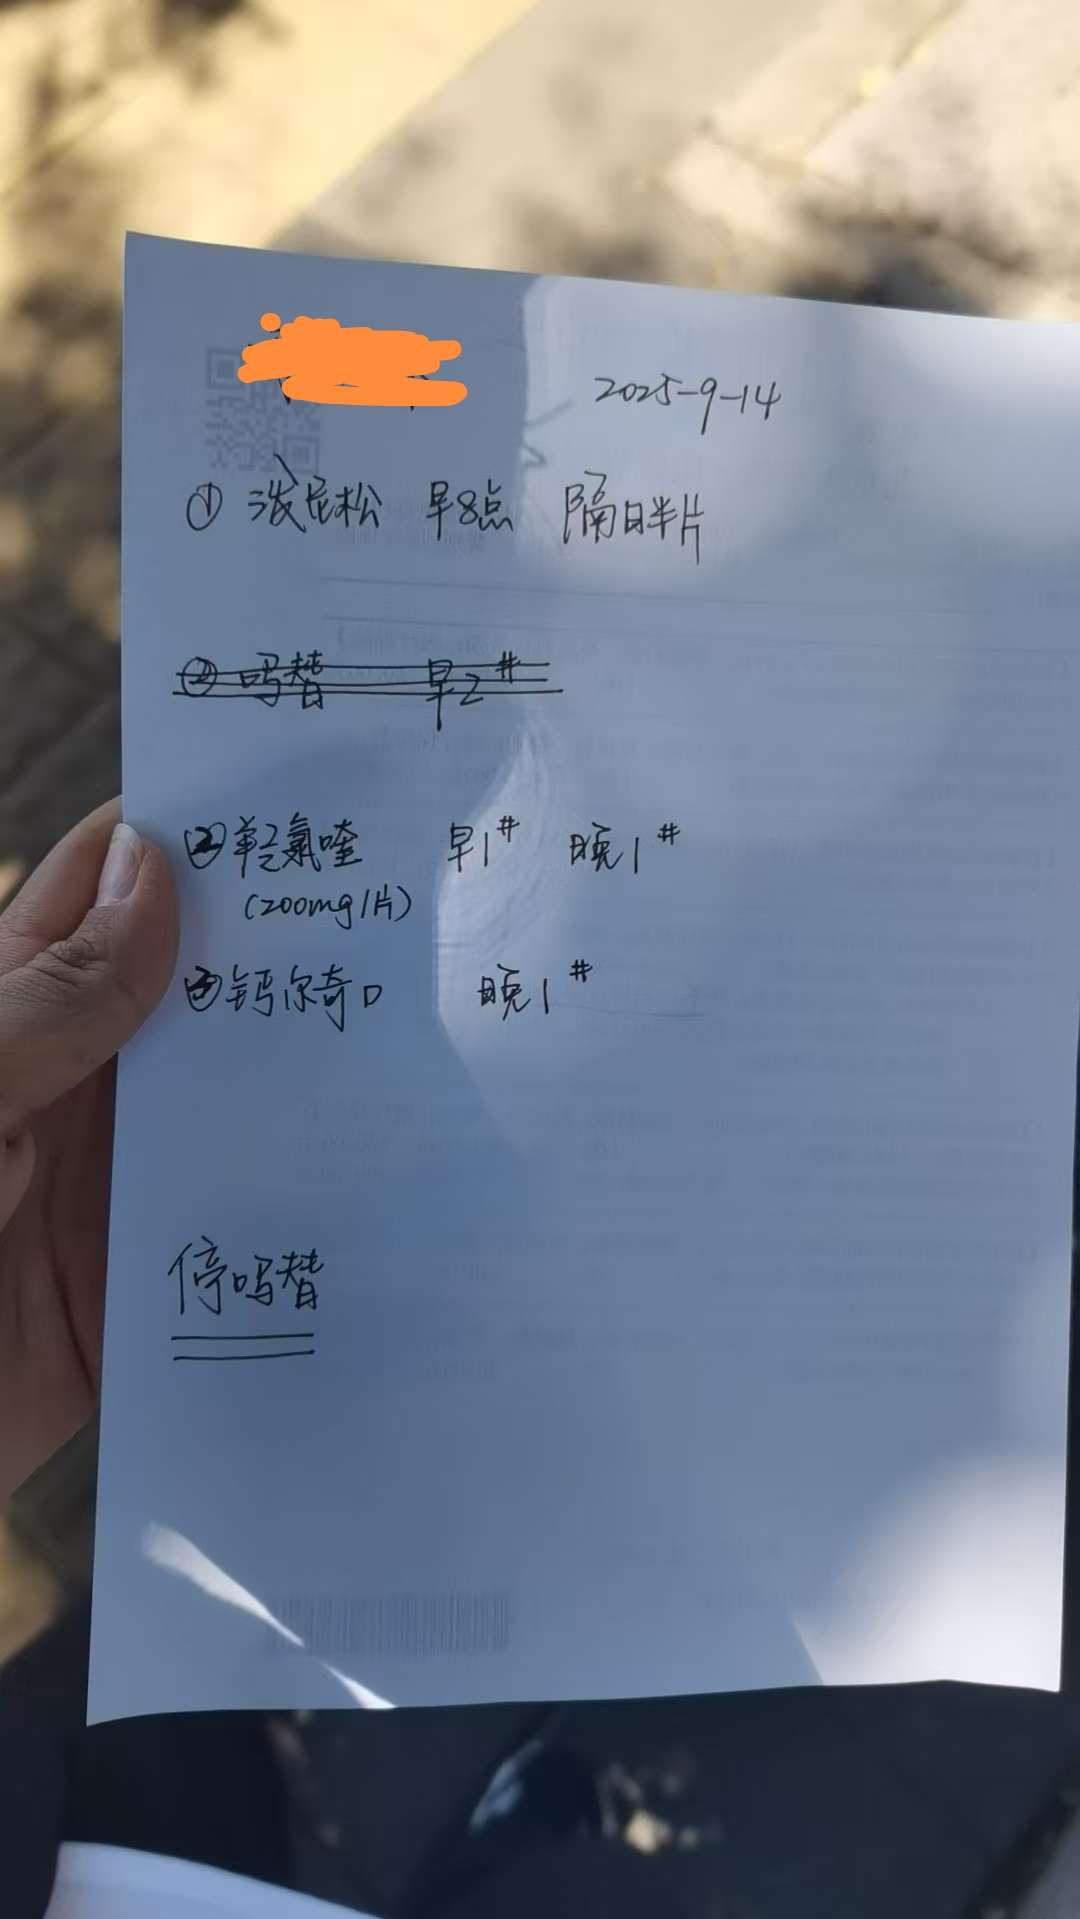 2025-9-14
① 泼尼松 早8点 隔日半片
② 吗替 早2#
② 羟氯喹 早1# 晚1#
(200mg/片)
③ 钙尔奇D 晚1#
停吗替